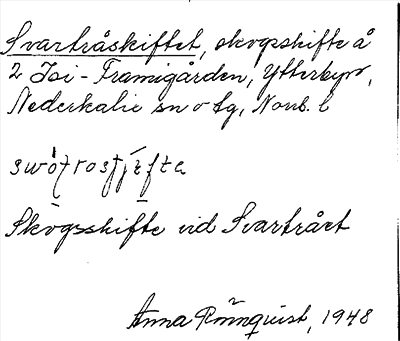 Svartråskiftet, skogsskifte å
2 Isi-Framigården, Ytterbyn,
Nederkalix sn o tg, Norrb. l
Skogsskifte vid Svartrået
Anna Rönnqvist, 1948